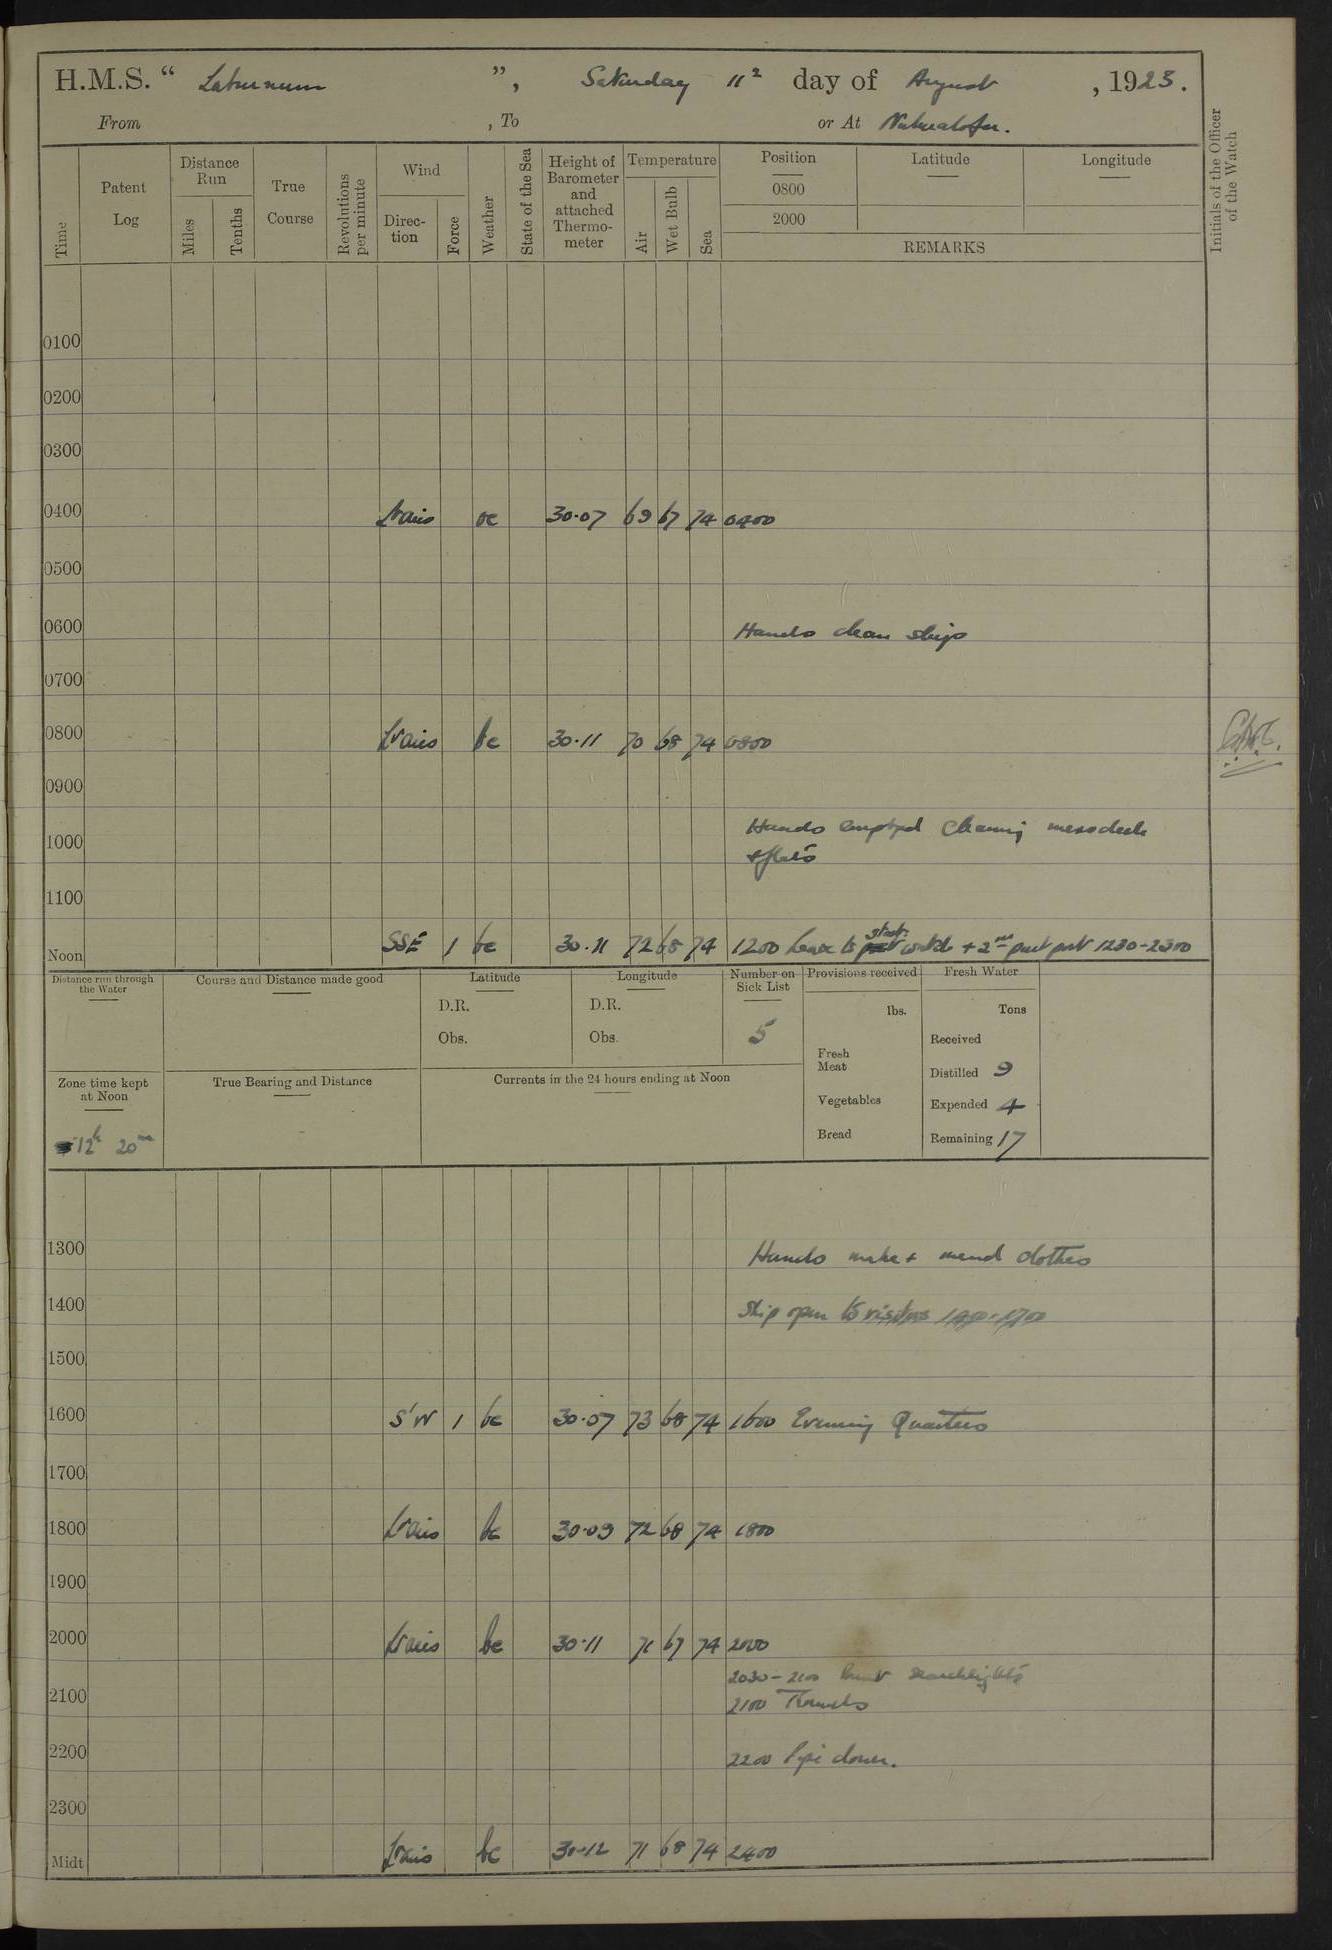 H.M.S. “ Laburnum ”, Saturday 11th day of August, 1923.
From , To or At Nukualofa.
Time
Patent Log
Distance Run
Miles
Tenths
True Course
Revolutions per minute
Wind
Direction
Force
Weather
State of the Sea
Height of Barometer and attached Thermometer
Temperature
Air
Wet Bulb
Sea
Position
0800
2000
Latitude
Longitude
REMARKS
Initials of the Officer of the Watch
0100
0200
0300
0400 Vairs bc 30·07 69 67 74 0400
0500
0600 Hands clean ship
0700
0800 Vairs bc 30·11 70 68 74 0800
0900
Hands employed cleaning messdeck
1000
& flats
1100
Noon SSE 1 bc 30·11 72 68 74 1200 Leave to starb: watch + 2nd part port 1230-2300
Distance run through the Water
Course and Distance made good
Latitude
D.R.
Obs.
Longitude
D.R.
Obs.
Number on Sick List
5
Provisions received
lbs.
Fresh Meat
Vegetables
Bread
Fresh Water
Tons
Received
Distilled 9
Expended 4
Remaining 17
Zone time kept at Noon
12h 20m
True Bearing and Distance
Currents in the 24 hours ending at Noon
1300 Hands make + mend clothes
1400 Ship open to visitors 1400-1700
1500
1600 S'W 1 bc 30·07 73 68 74 1600 Evening Quarters
1700
1800 Vairs bc 30·09 72 68 74 1800
1900
2000 Vairs bc 30·11 71 67 74 2000
2030-2100 Burnt searchlights
2100 2100 Rounds
2200 2200 Pipe down.
2300
Midt Vairs bc 30·12 71 68 74 2400